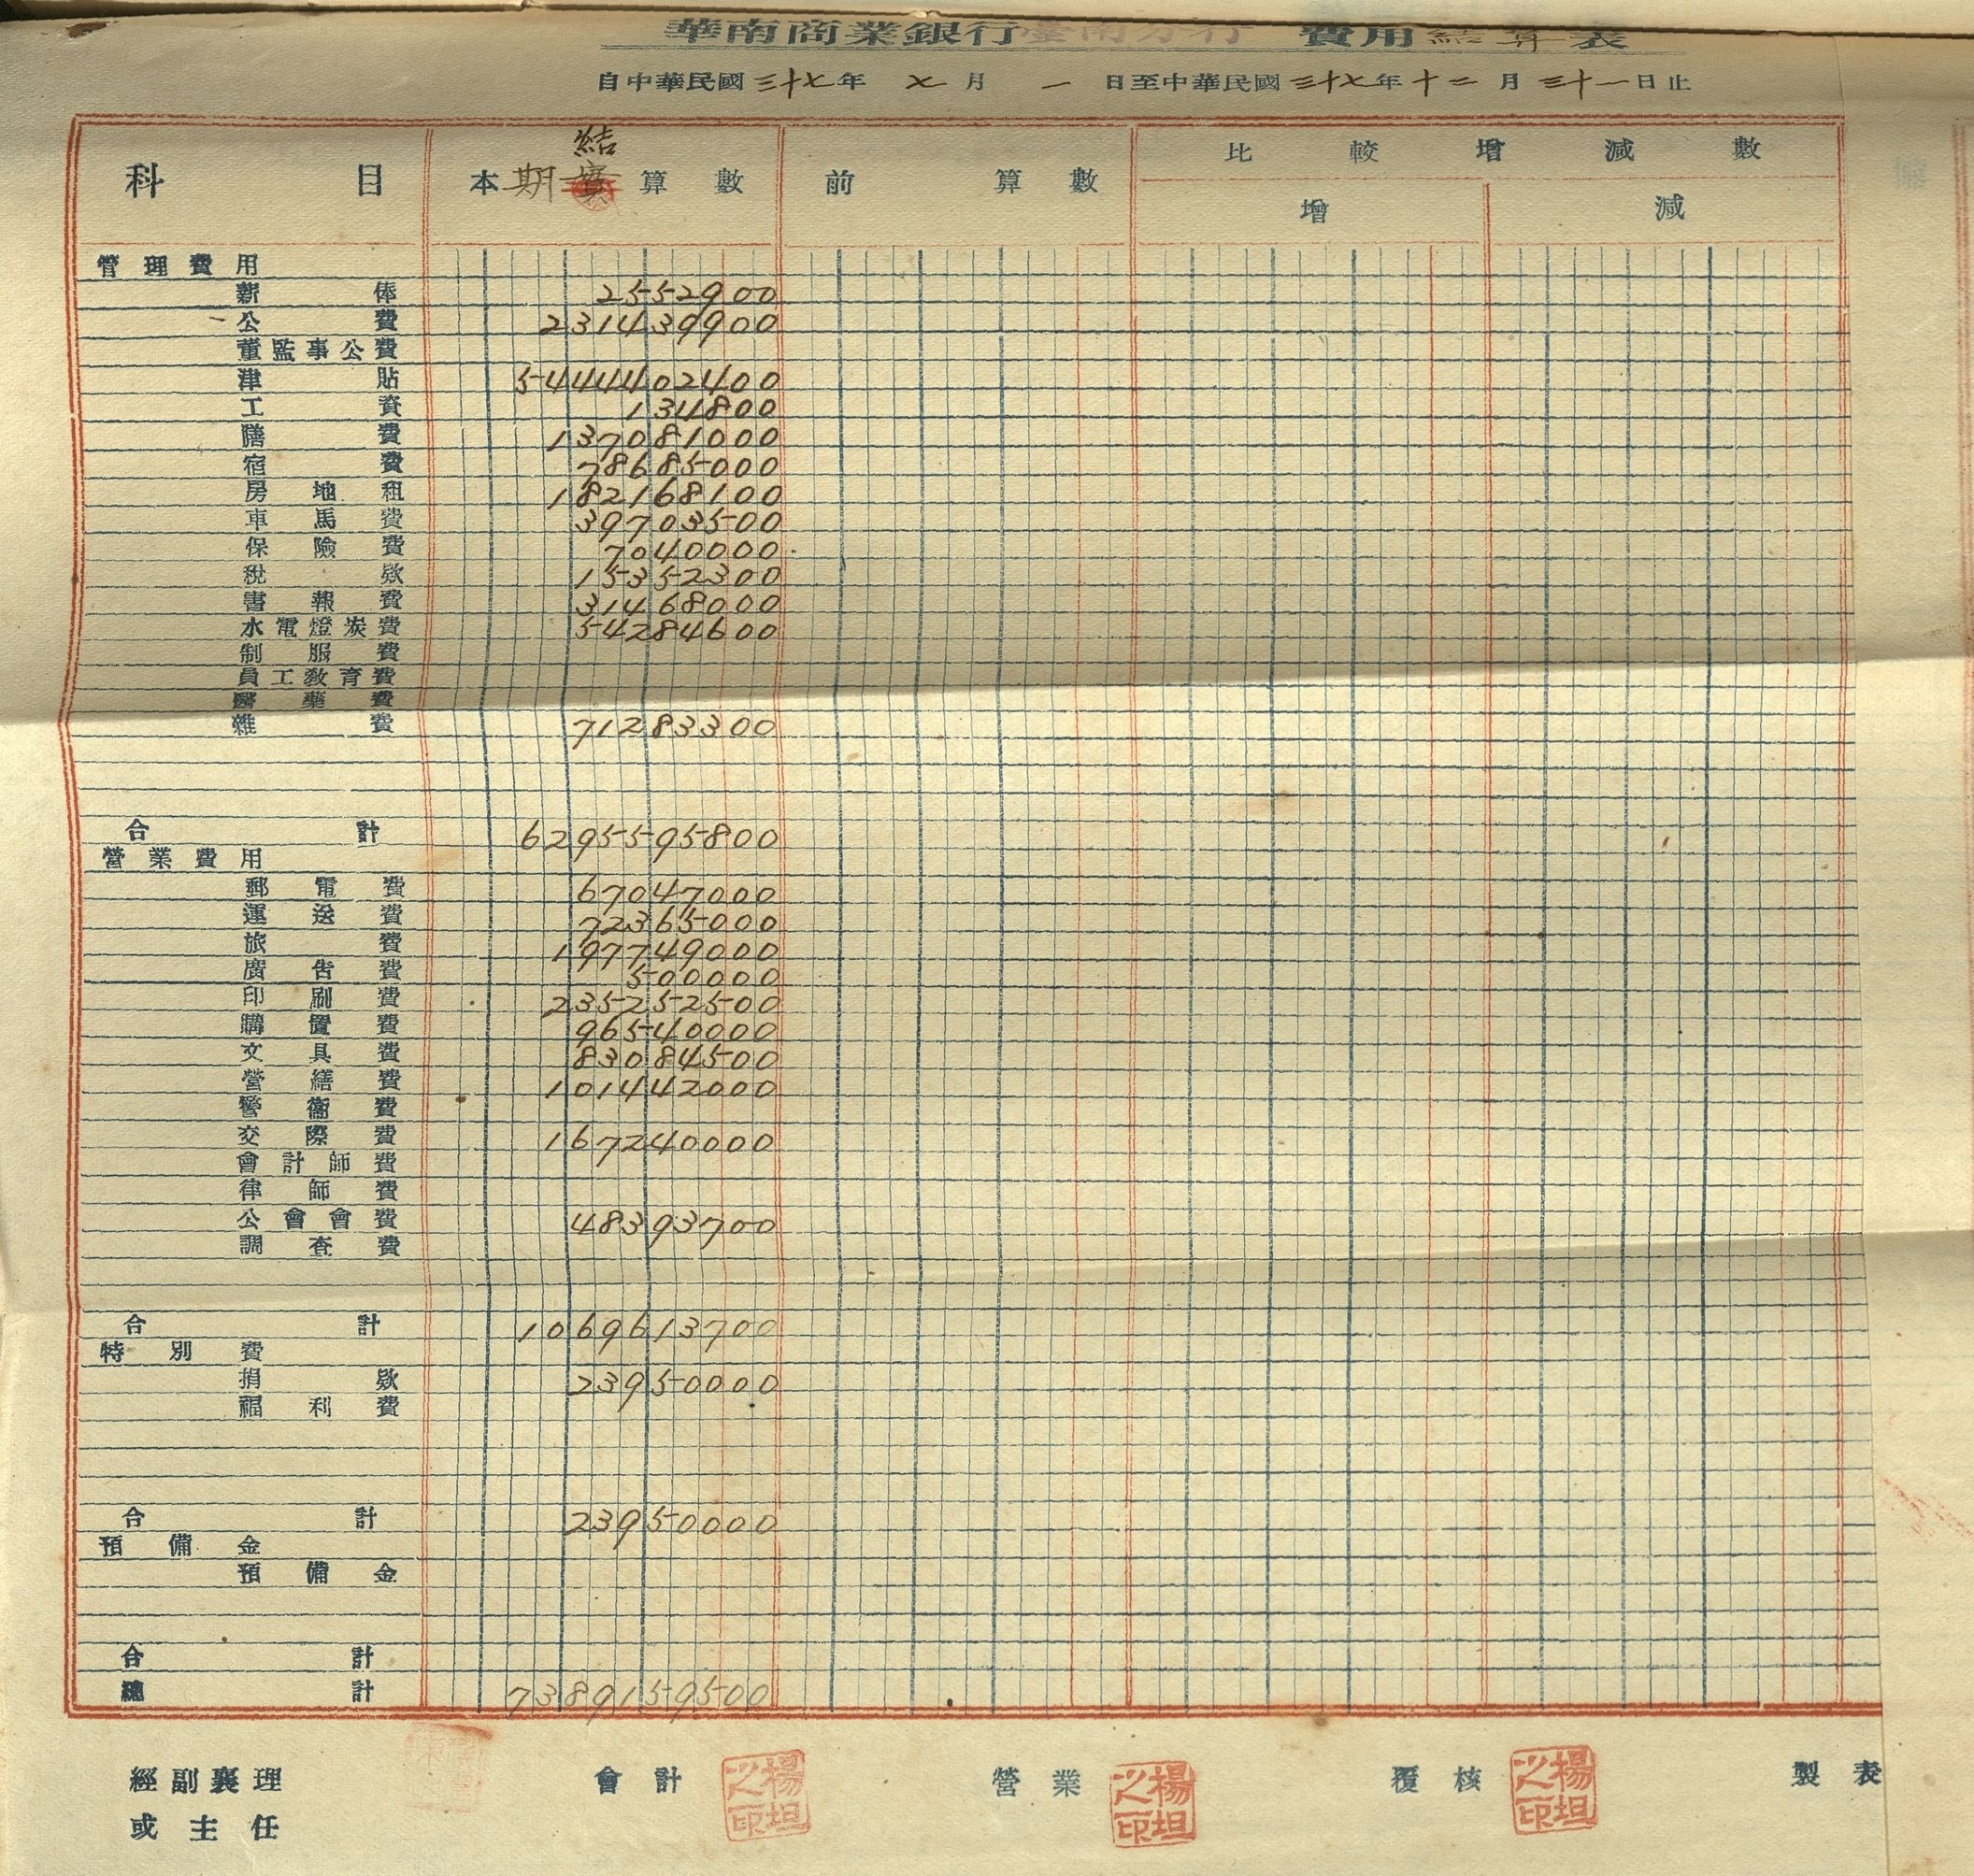 華南商業銀行臺南分行 費用結算表
自中華民國三十七年 七月 一日至中華民國三十七年十二月三十一日止
科目 本期結算數 前 算數 比較增減數
增 減
管理費用
薪俸 2552900
公費 231439900
董監事公費
津貼 5444402400
工資 134800
膳費 137081000
宿費 78685000
房地租 182168100
車馬費 39703500
保險費 7040000
稅款 15352300
書報費 31468000
水電燈炭費 54284600
制服費
員工教育費
醫藥費
雜費 71283300
合計 6295595800
營業費用
郵電費 67047000
運送費 72365000
旅費 197749000
廣告費 500000
印刷費 235252500
購置費 96540000
文具費 83084500
營繕費 101442000
警衞費
交際費 167240000
會計師費
律師費
公會會費 48393700
調查費
合計 1069613700
特別費
捐款 23950000
福利費
合計 23950000
預備金
預備金
合計
總計 7389159500
經副襄理 會計 楊坦之印 營業 楊坦之印 覆核 楊坦之印 製表
或主任